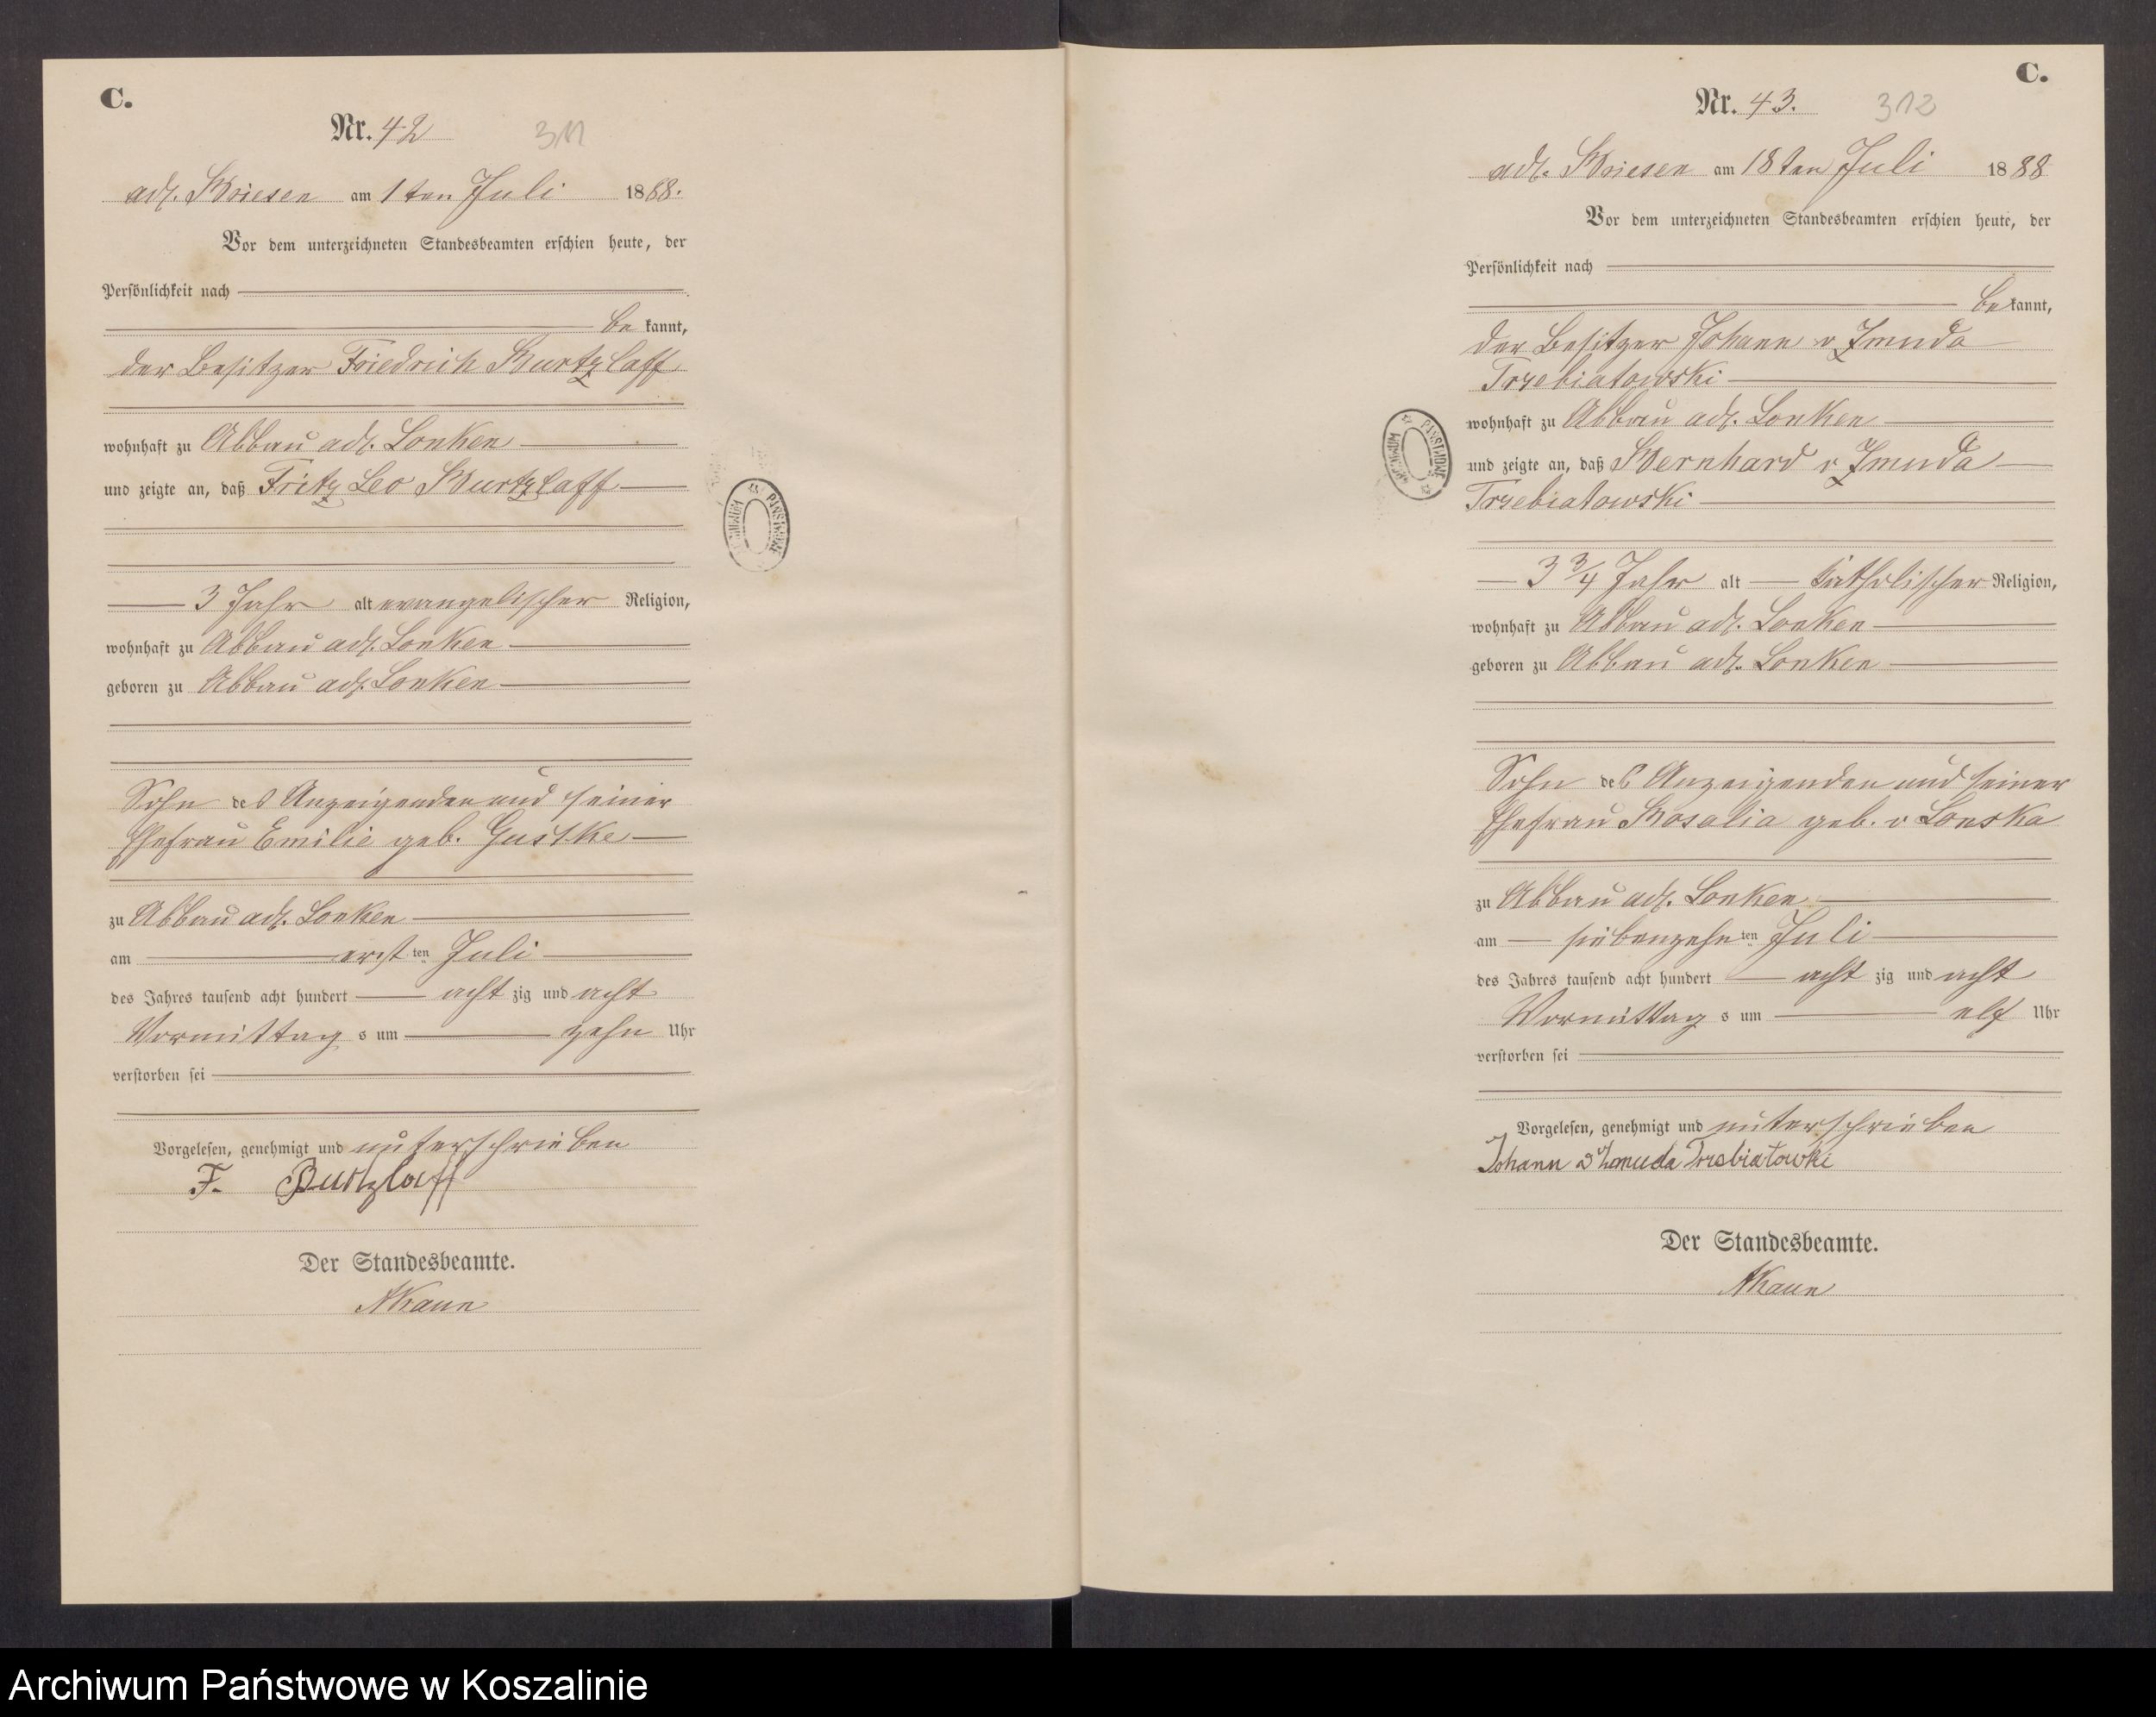 C.
Nr. 42
311
adl. Briesen am 1ten Juli 1888.
Vor dem unterzeichneten Standesbeamten erschien heute, der
Persönlichkeit nach
be kannt,
der Besitzer Friedrich Burtzlaff
wohnhaft zu Abbau adl. Lonken
und zeigte an, daß Fritz Leo Burtzlaff
3 Jahr alt evangelischer Religion,
wohnhaft zu Abbau adl. Lonken
geboren zu Abbau adl. Lonken
Sohn des Anzeigenden und seiner
Ehefrau Emilie geb. Gustke
zu Abbau adl. Lonken
am ersten Juli
des Jahres tausend acht hundert acht zig und acht
Vormittag s um zehn Uhr
verstorben sei
Vorgelesen, genehmigt und unterschrieben
F. Burtzlaff
Der Standesbeamte.
PAŃSTWOWE
ARCHIWUM
C.
Nr. 43.
312
adl. Briesen am 18ten Juli 1888
Vor dem unterzeichneten Standesbeamten erschien heute, der
Persönlichkeit nach
be kannt,
der Besitzer Johann v Zmuda
Trzebiatowski
wohnhaft zu Abbau adl. Lonken
und zeigte an, daß Bernhard v Zmuda
Trzebiatowski
3 3/4 Jahr alt katholischer Religion,
wohnhaft zu Abbau adl. Lonken
geboren zu Abbau adl. Lonken
Sohn des Anzeigenden und seiner
Ehefrau Rosalia geb. v Lonska
zu Abbau adl. Lonken
am siebenzehnten Juli
des Jahres tausend acht hundert acht zig und acht
Vormittag s um elf Uhr
verstorben sei
Vorgelesen, genehmigt und unterschrieben
Johann v Zmuda Trzebiatowski
Der Standesbeamte.
PAŃSTWOWE
ARCHIWUM
Archiwum Państwowe w Koszalinie